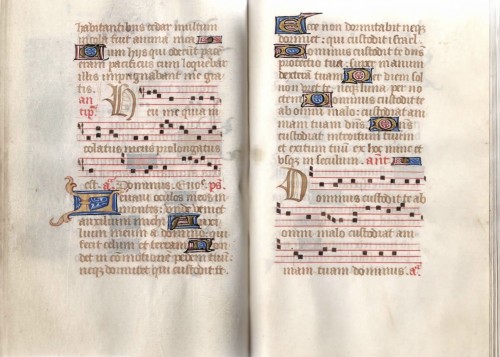 habitantibus cedar multum
incola fuit anima mea
um hijs qui oderūt pacē
eram pacificus cum loquebar
illis impugnabant me gra
tis.
an
tip̄.
H
eu me quia in
colatus meus prolongatus
est. a͞. Dominus. Quo. ps.
Leuaui oculos meos in
montes: unde ueniet
auxilium michi
A
uxilium meum a domino: qui
fecit celum et terram
N
on
det in cōmotionem pedem tuum
neqȝ dormitet qui custodit te.
Ecce non dormitabit neqȝ
dormiet: qui custodit israel
Dominus custodit te dn̄s
protectio tua: super manum
dexterā tuam
Per diem sol
non vret te: neqȝ luna per no
ctem
Dominus custodit te
ab omni malo: custodiat am
mam tuam dn̄s
Dn̄s
custodiat introitum tuum
et exitum tuū ex hoc nunc et
vsqȝ in seculum. ant̄
D
ominus custodit te ab
omni malo: custodiat ani
mam tuam dominus. a͞.